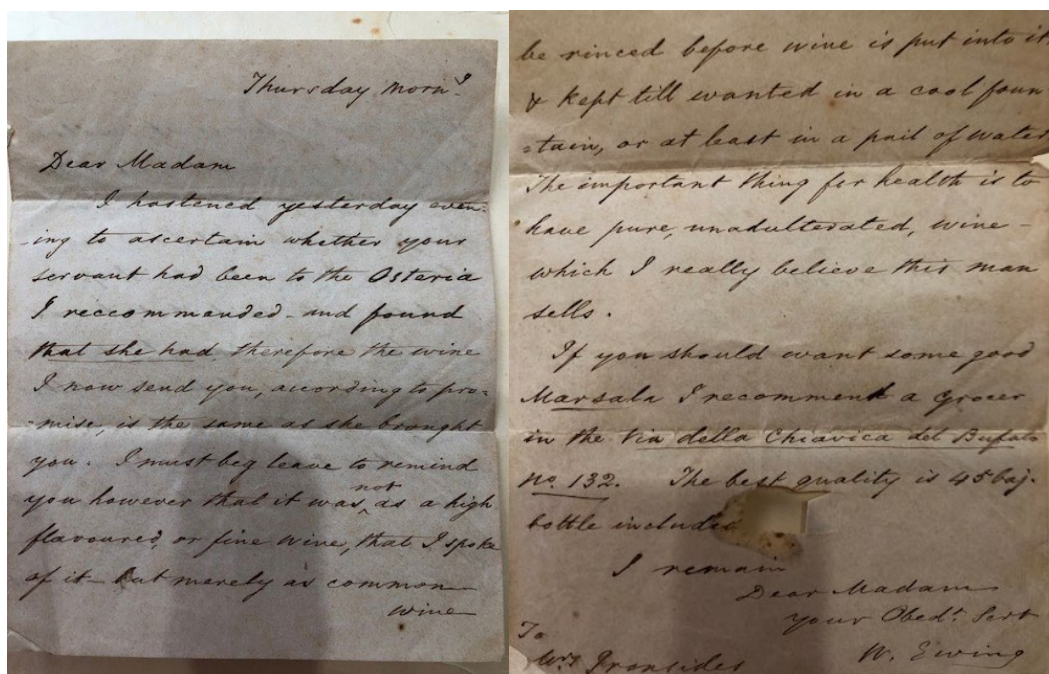 Thursday Morng.
Dear Madam
I hastened yesterday even-
-ing to ascertain whether your
servant had been to the Osteria
I reccommanded - and found
that she had, therefore the wine
I now send you, according to pro=
-mise, is the same as she brought
you. I must beg leave to remind
you however that it was not as a high
flavoured, or fine wine, that I spoke
of it - but merely as common
wine
be rinced before wine is put into it,
& kept till wanted in a cool foun
=tain, or at least in a pail of water
The important thing for health is to
have pure, unadulterated, wine -
which I really believe this man
sells.
If you should want some good
Marsala I recommend a Grocer
in the Via della Chiavica del Bufalo
no. 132. The best quality is 45 baj.
bottle included
I remain
Dear Madam
your Obedt. Sert
W. Ewing
To
Mrs Ironsides